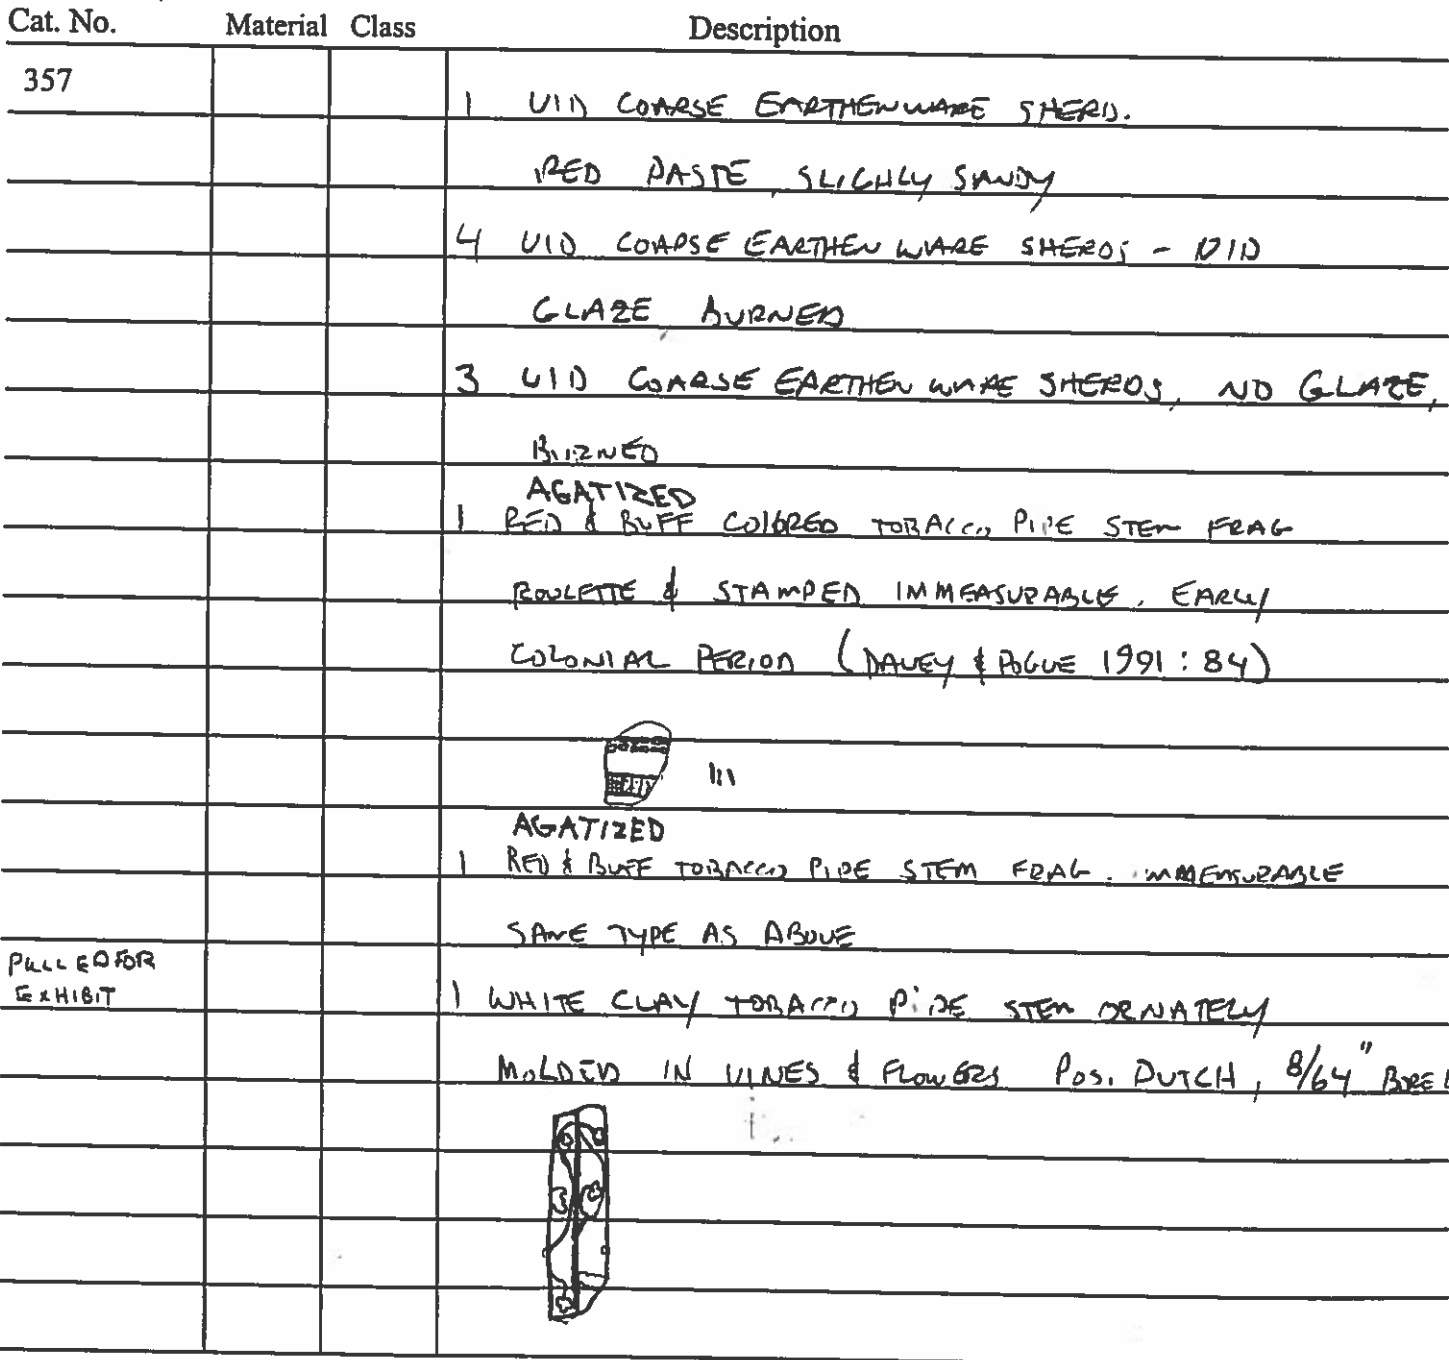 Cat. No. Material Class Description
357
1 UID COARSE EARTHENWARE SHERD.
RED PASTE, SLIGHLY SANDY
4 UID COARSE EARTHEN WARE SHERDS - UID
GLAZE, BURNED
3 UID COARSE EARTHEN WARE SHERDS, NO GLAZE,
BURNED
AGATIZED
1 RED & BUFF COLORED TOBACCO PIPE STEM FRAG
ROULETTE & STAMPED IMMEASURABLE. EARLY
COLONIAL PERIOD (DAVEY & POGUE 1991:84)
AGATIZED
1 RED & BUFF TOBACCO PIPE STEM FRAG. IMMEASURABLE
SAME TYPE AS ABOVE
PULLED FOR
EXHIBIT
1 WHITE CLAY TOBACCO PIPE STEM ORNATELY
MOLDED IN VINES & FLOWERS POS. DUTCH, 8/64" BORE